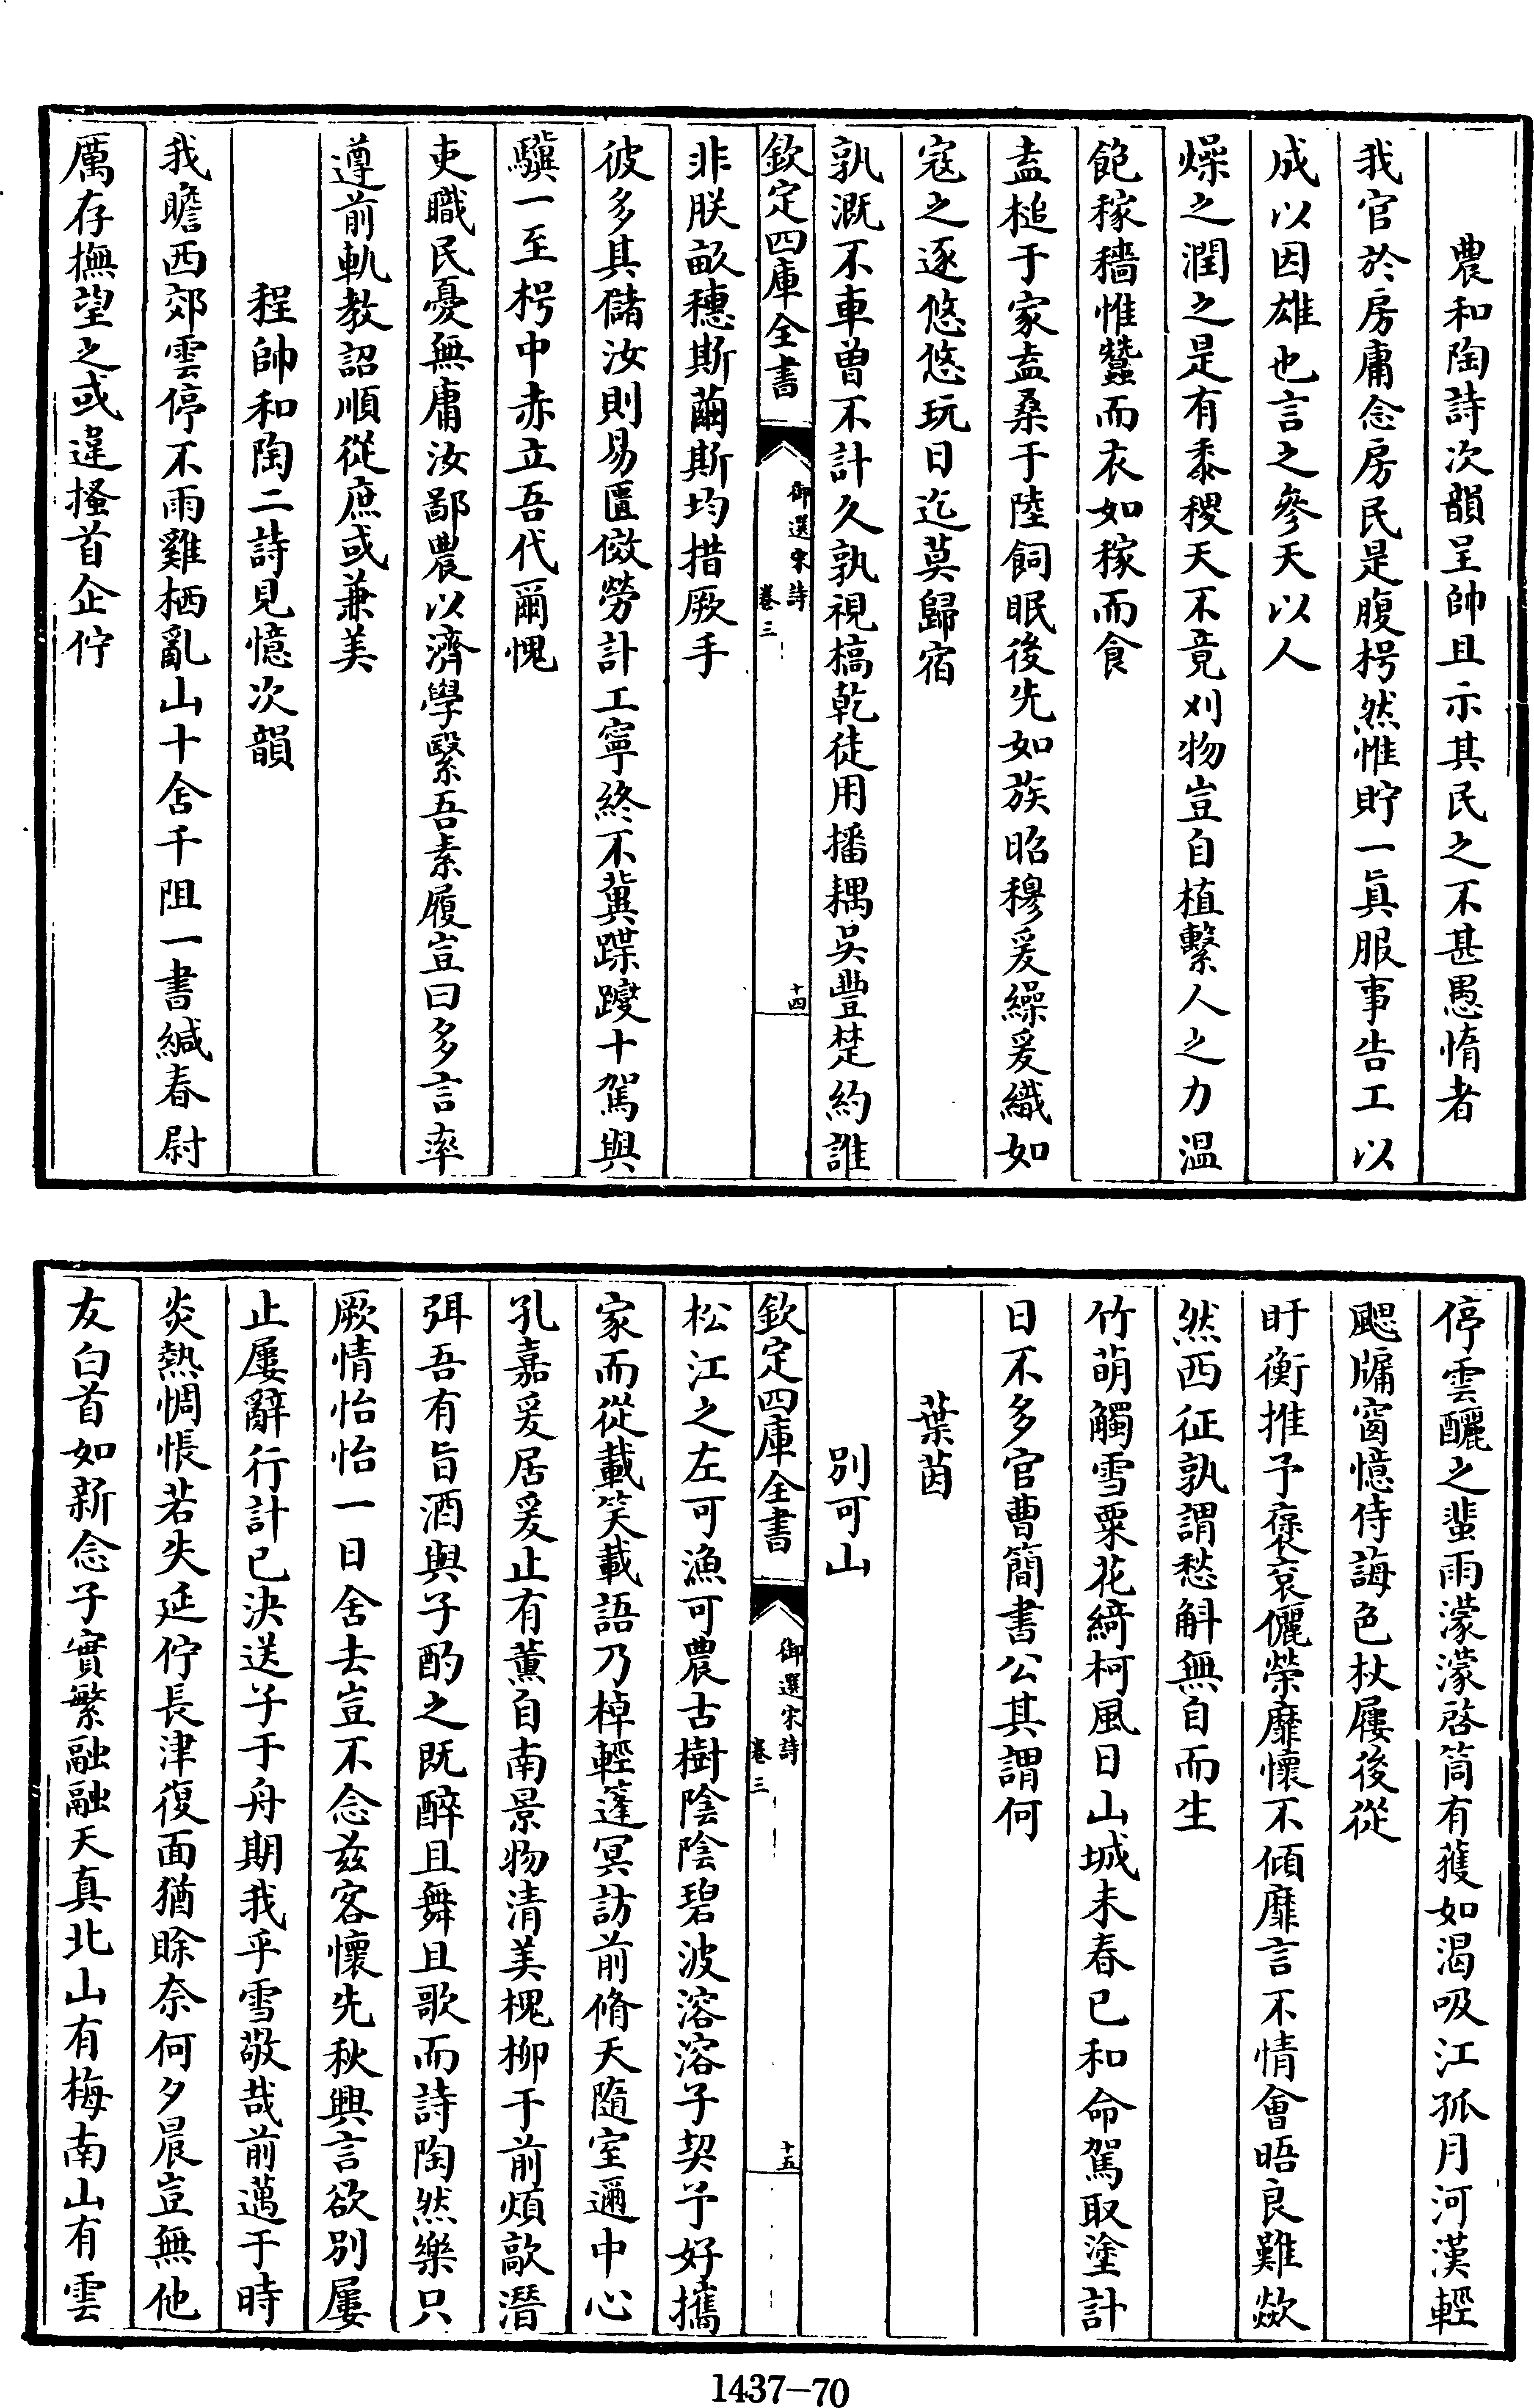 農和陶詩次韻呈帥且示其民之不甚愚惰者
我官於房庸念房民是腹枵然惟貯一眞服事告工以
成以因雄也言之參天以人
燥之潤之是有黍稷天不竟刈物豈自植繫人之力温
飽稼穡惟蠶而衣如稼而食
盍槌于家盍桑于陸飼眠後先如族昭穆爰繰爰織如
寇之逐悠悠玩日迄莫歸宿
孰溉不車曽不計久孰視槁乾徒用播耦吳豐楚約誰
欽定四庫全書
御選宋詩
卷三
十四
非朕畝穗斯繭斯均措厥手
彼多其儲汝則易匱儆勞計工寧終不冀蹀躞十駕與
驥一至枵中赤立吾代爾愧
吏職民憂無庸汝鄙農以濟學緊吾素履豈曰多言率
遵前軌教詔順從庶或兼美
程帥和陶二詩見憶次韻
我瞻西郊雲停不雨雞栖亂山十舍千阻一書緘春尉
厲存撫望之或違搔首企佇
停雲釃之蜚雨濛濛啓筒有蒦如渴吸江孤月河漢輕
颸牖窗憶侍誨色杖屨後從
盱衡推予褒衮儷榮靡懷不傾靡言不情會晤良難歘
然西征孰謂愁斛無自而生
竹萌觸雪粟花綺柯風日山城未春已和命駕取塗計
日不多官曹簡書公其謂何
葉茵
別可山
欽定四庫全書
御選宋詩
卷三
十五
松江之左可漁可農古樹陰陰碧波溶溶子契予好攜
家而從載笑載語乃棹輕篷冥訪前脩天隨室邇中心
孔嘉爰居爰止有薰自南景物清美槐柳于前煩歊潛
弭吾有旨酒與子酌之既醉且舞且歌而詩陶然樂只
厥情怡怡一日舍去豈不念兹客懷先秋興言欲別屢
止屢辭行計已決送子于舟期我乎雪敬哉前邁于時
炎熱惆悵若失延佇長津復面猶賖奈何夕晨豈無他
友白首如新念子實繁融融天真北山有梅南山有雲
1437—70